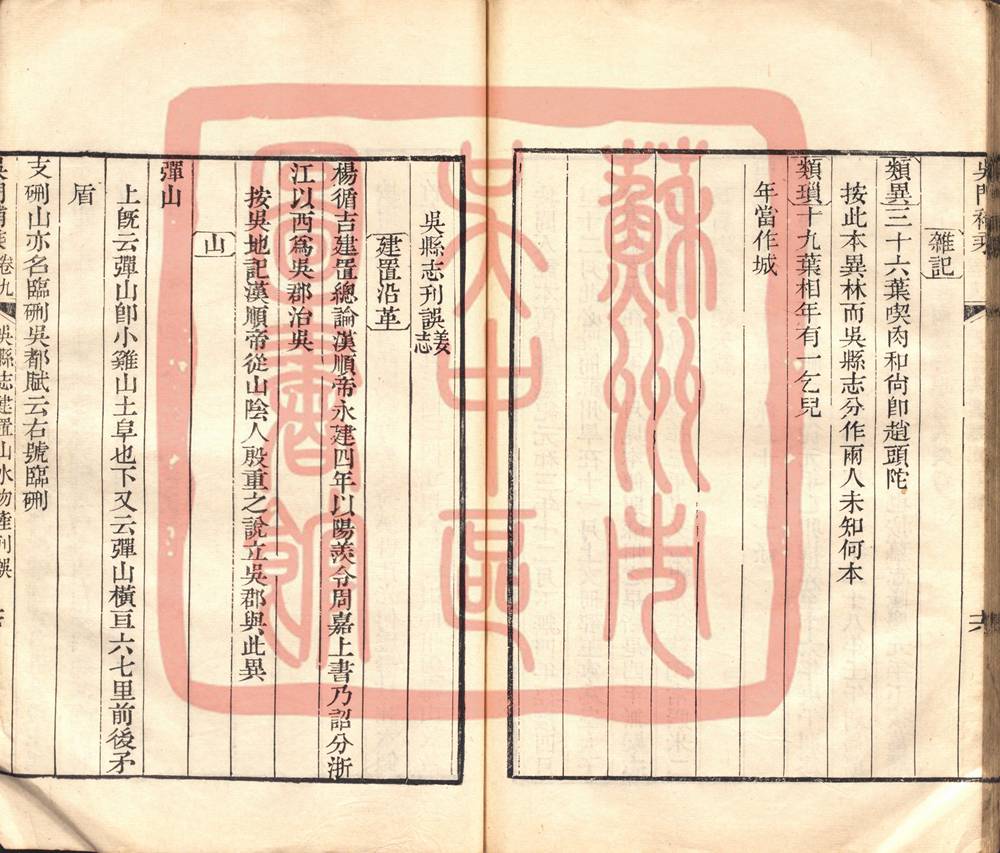 雜記
類異三十六葉喫肉和尙卽趙頭陀
按此本異林而吳縣志分作兩人未知何本
類瑣十九葉相年有一乞兒
年當作城
吳縣志刊誤姜志
建置沿革
楊循吉建置總論漢順帝永建四年以陽羨令周嘉上書乃詔分浙
江以西爲吳郡治吳
按吳地記漢順帝從山陰人殷重之說立吳郡與此異
山
彈山
上旣云彈山卽小雞山土阜也下又云彈山橫亘六七里前後矛
盾
支硎山亦名臨硎吳都賦云右號臨硎
卷九
吳縣志建置山水物產刊誤
蘇州市
吳中區
圖書館